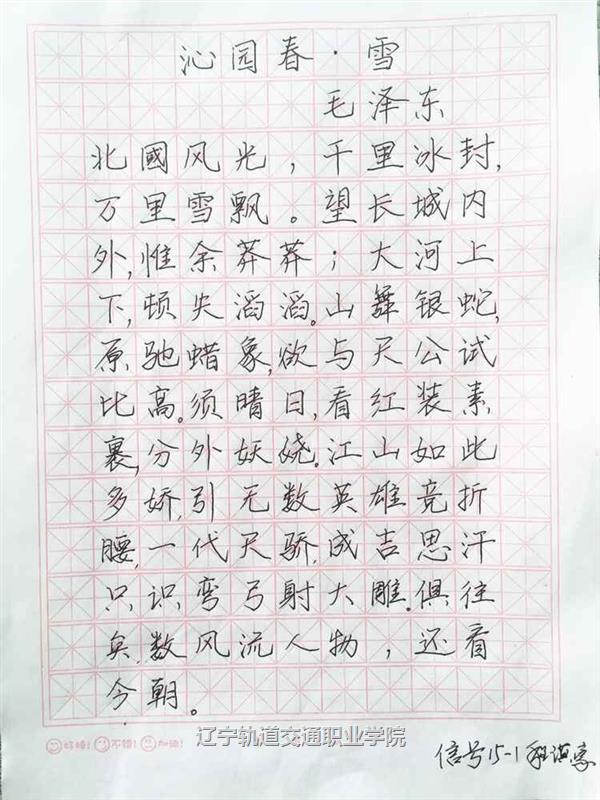 沁园春·雪
毛泽东
北國风光，千里冰封，
万里雪飘。望长城内
外，惟余莽莽；大河上
下，顿失滔滔。山舞银蛇，
原驰蜡象，欲与天公试
比高。须晴日，看红装素
裹，分外妖娆。江山如此
多娇，引无数英雄竞折
腰，一代天骄，成吉思汗
只识弯弓射大雕。俱往
矣，数风流人物，还看
今朝。
好棒！不错！加油！
辽宁轨道交通职业学院
信号15-1